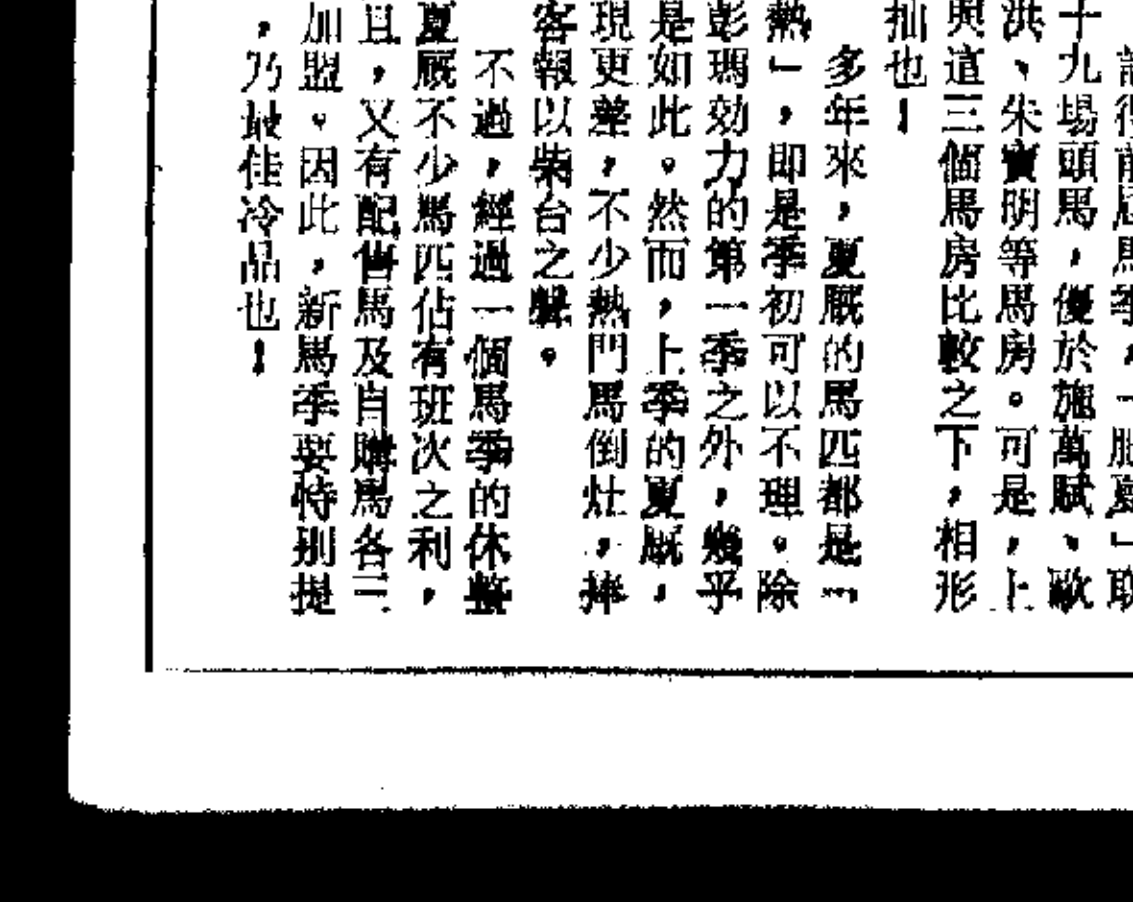 得前屆馬季，一
十九場頭馬，優於施萬賦、歐
洪、朱寶明等馬房。可是，上
與這三個馬房比較之下，相形
拙也！
多年來，夏厩的馬匹都是「
熱」，即是季初可以不理。除
彭瑪効力的第一季之外，幾乎
是如此。然而，上季的夏厩，
現更差，不少熱門馬倒灶，捧
客報以柴台之聲。
不過，經過一個馬季的休整
夏厩不少馬匹佔有班次之利，
且，又有配售馬及自購馬各三
加盟。因此，新馬季要特別提
，乃最佳冷品也！